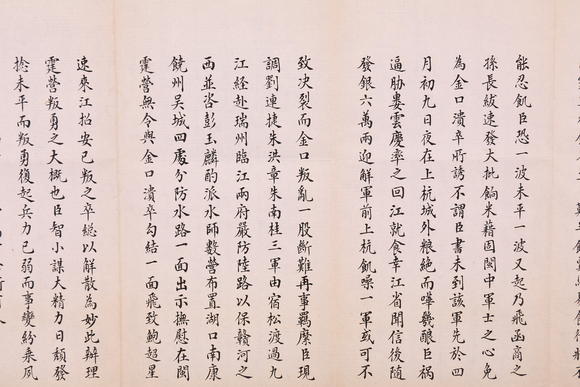 能忍飢臣恐一波未平一波又起乃飛函商之
孫長紱速發大批餉米藉固閩中軍士之心免
為金口潰卒所誘不謂臣書未到該軍先於四
月初九日夜在上杭城外粮絶而嘩幾釀巨禍
逼脅婁雲慶率之回江就食幸江省聞信後隨
發銀六萬兩迎解軍前上杭飢噪一軍或可不
致決裂而金口叛亂一股斷難再事羈縻臣現
調劉連捷朱洪章朱南桂三軍由宿松渡過九
江經赴瑞州臨江兩府嚴防陸路以保贛河之
西並咨彭玉麟酌派水師數營布置湖口南康
饒州吳城四處分防水路一面出示撫慰在閩
霆營無令與金口潰卒勾結一面飛致鮑超星
速來江招安已叛之卒總以解散為妙此辦理
霆營叛勇之大概也臣智小謀大精力日頹發
捻未平而叛勇復起兵力已弱而事變紛乘風